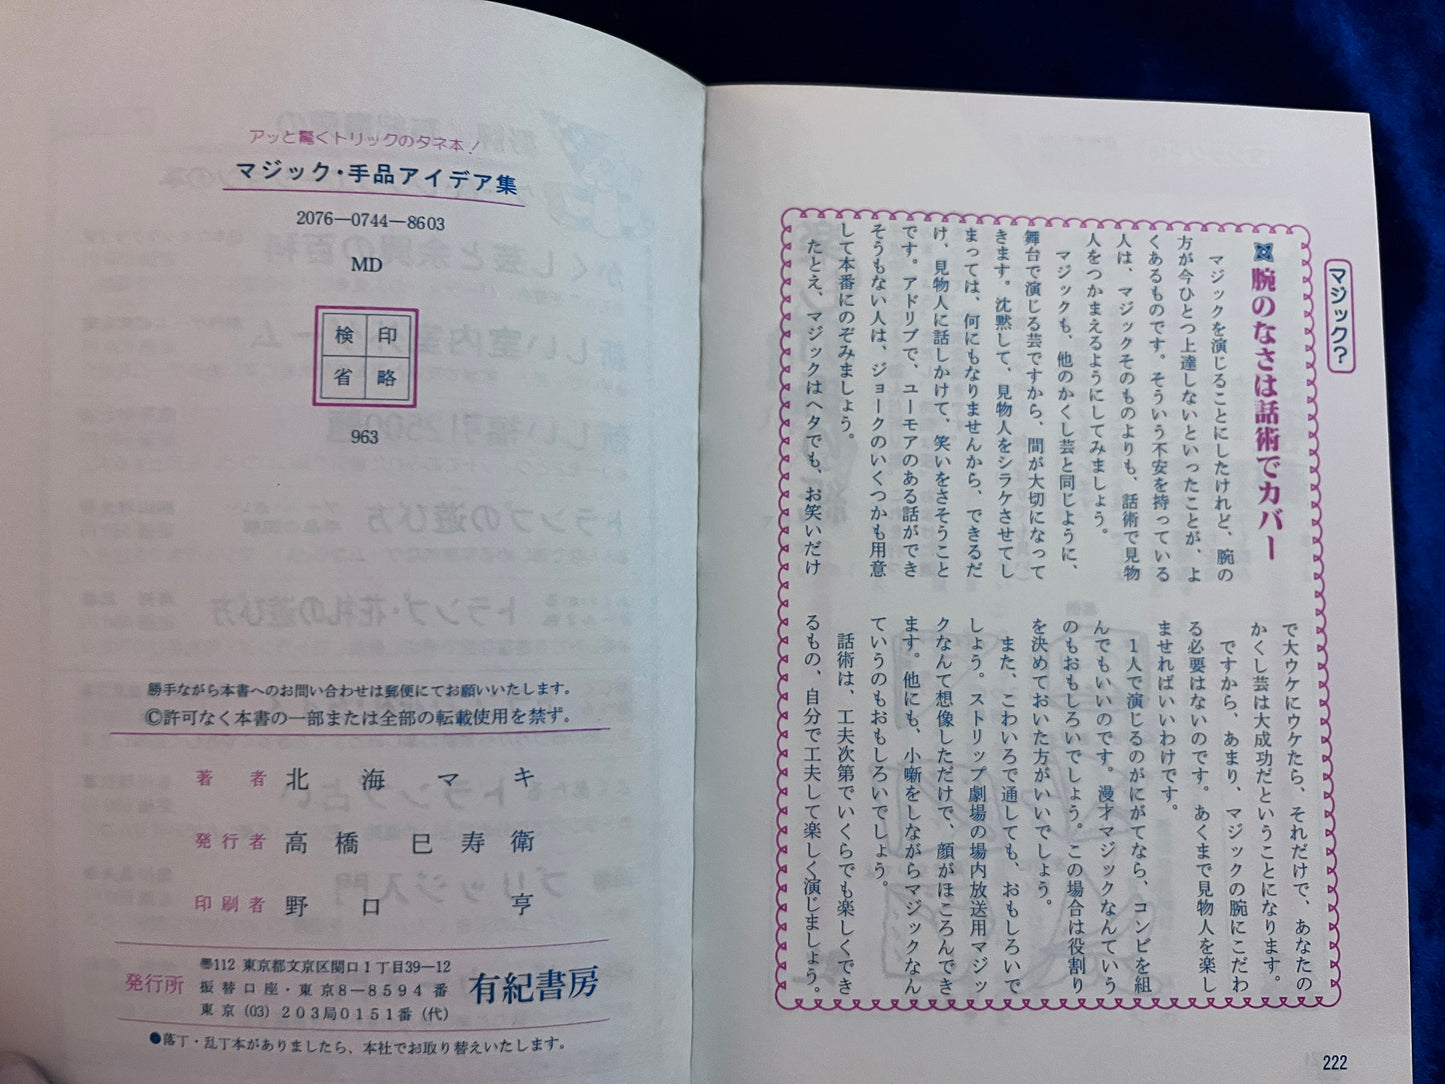 マジック?
腕のなさは話術でカバー
マジックを演じることにしたけれど、腕の
方が今ひとつ上達しないといったことが、よ
くあるものです。そういう不安を持っている
人は、マジックそのものよりも、話術で見物
人をつかまえるようにしてみましょう。
マジックも、他のかくし芸と同じように、
舞台で演じる芸ですから、間が大切になって
きます。沈黙して、見物人をシラケさせてし
まっては、何にもなりませんから、できるだ
け、見物人に話しかけて、笑いをさそうこと
です。アドリブで、ユーモアのある話ができ
そうもない人は、ジョークのいくつかも用意
して本番にのぞみましょう。
たとえ、マジックはヘタでも、お笑いだけ
で大ウケにウケたら、それだけで、あなたの
かくし芸は大成功だということになります。
ですから、あまり、マジックの腕にこだわ
る必要はないのです。あくまで見物人を楽し
ませればいいわけです。
1人で演じるのがにがてなら、コンビを組
んでもいいのです。漫才マジックなんていう
のもおもしろいでしょう。この場合は役割り
を決めておいた方がいいでしょう。
また、こわいろで通しても、おもしろいで
しょう。ストリップ劇場の場内放送用マジッ
クなんて想像しただけで、顔がほころんでき
ます。他にも、小噺をしながらマジックなん
ていうのもおもしろいでしょう。
話術は、工夫次第でいくらでも楽しくでき
るもの、自分で工夫して楽しく演じましょう。
222
アッと驚くトリックのタネ本!
マジック・手品アイデア集
2076—0744—8603
MD
検印
省略
963
勝手ながら本書へのお問い合わせは郵便にてお願いいたします。
©許可なく本書の一部または全部の転載使用を禁ず。
著者 北海マキ
発行者 高橋巳寿衛
印刷者 野口亨
発行所
〠112 東京都文京区関口1丁目39—12
振替口座・東京8—8594番
東京(03)203局0151番(代)
有紀書房
●落丁・乱丁本がありましたら、本社でお取り替えいたします。